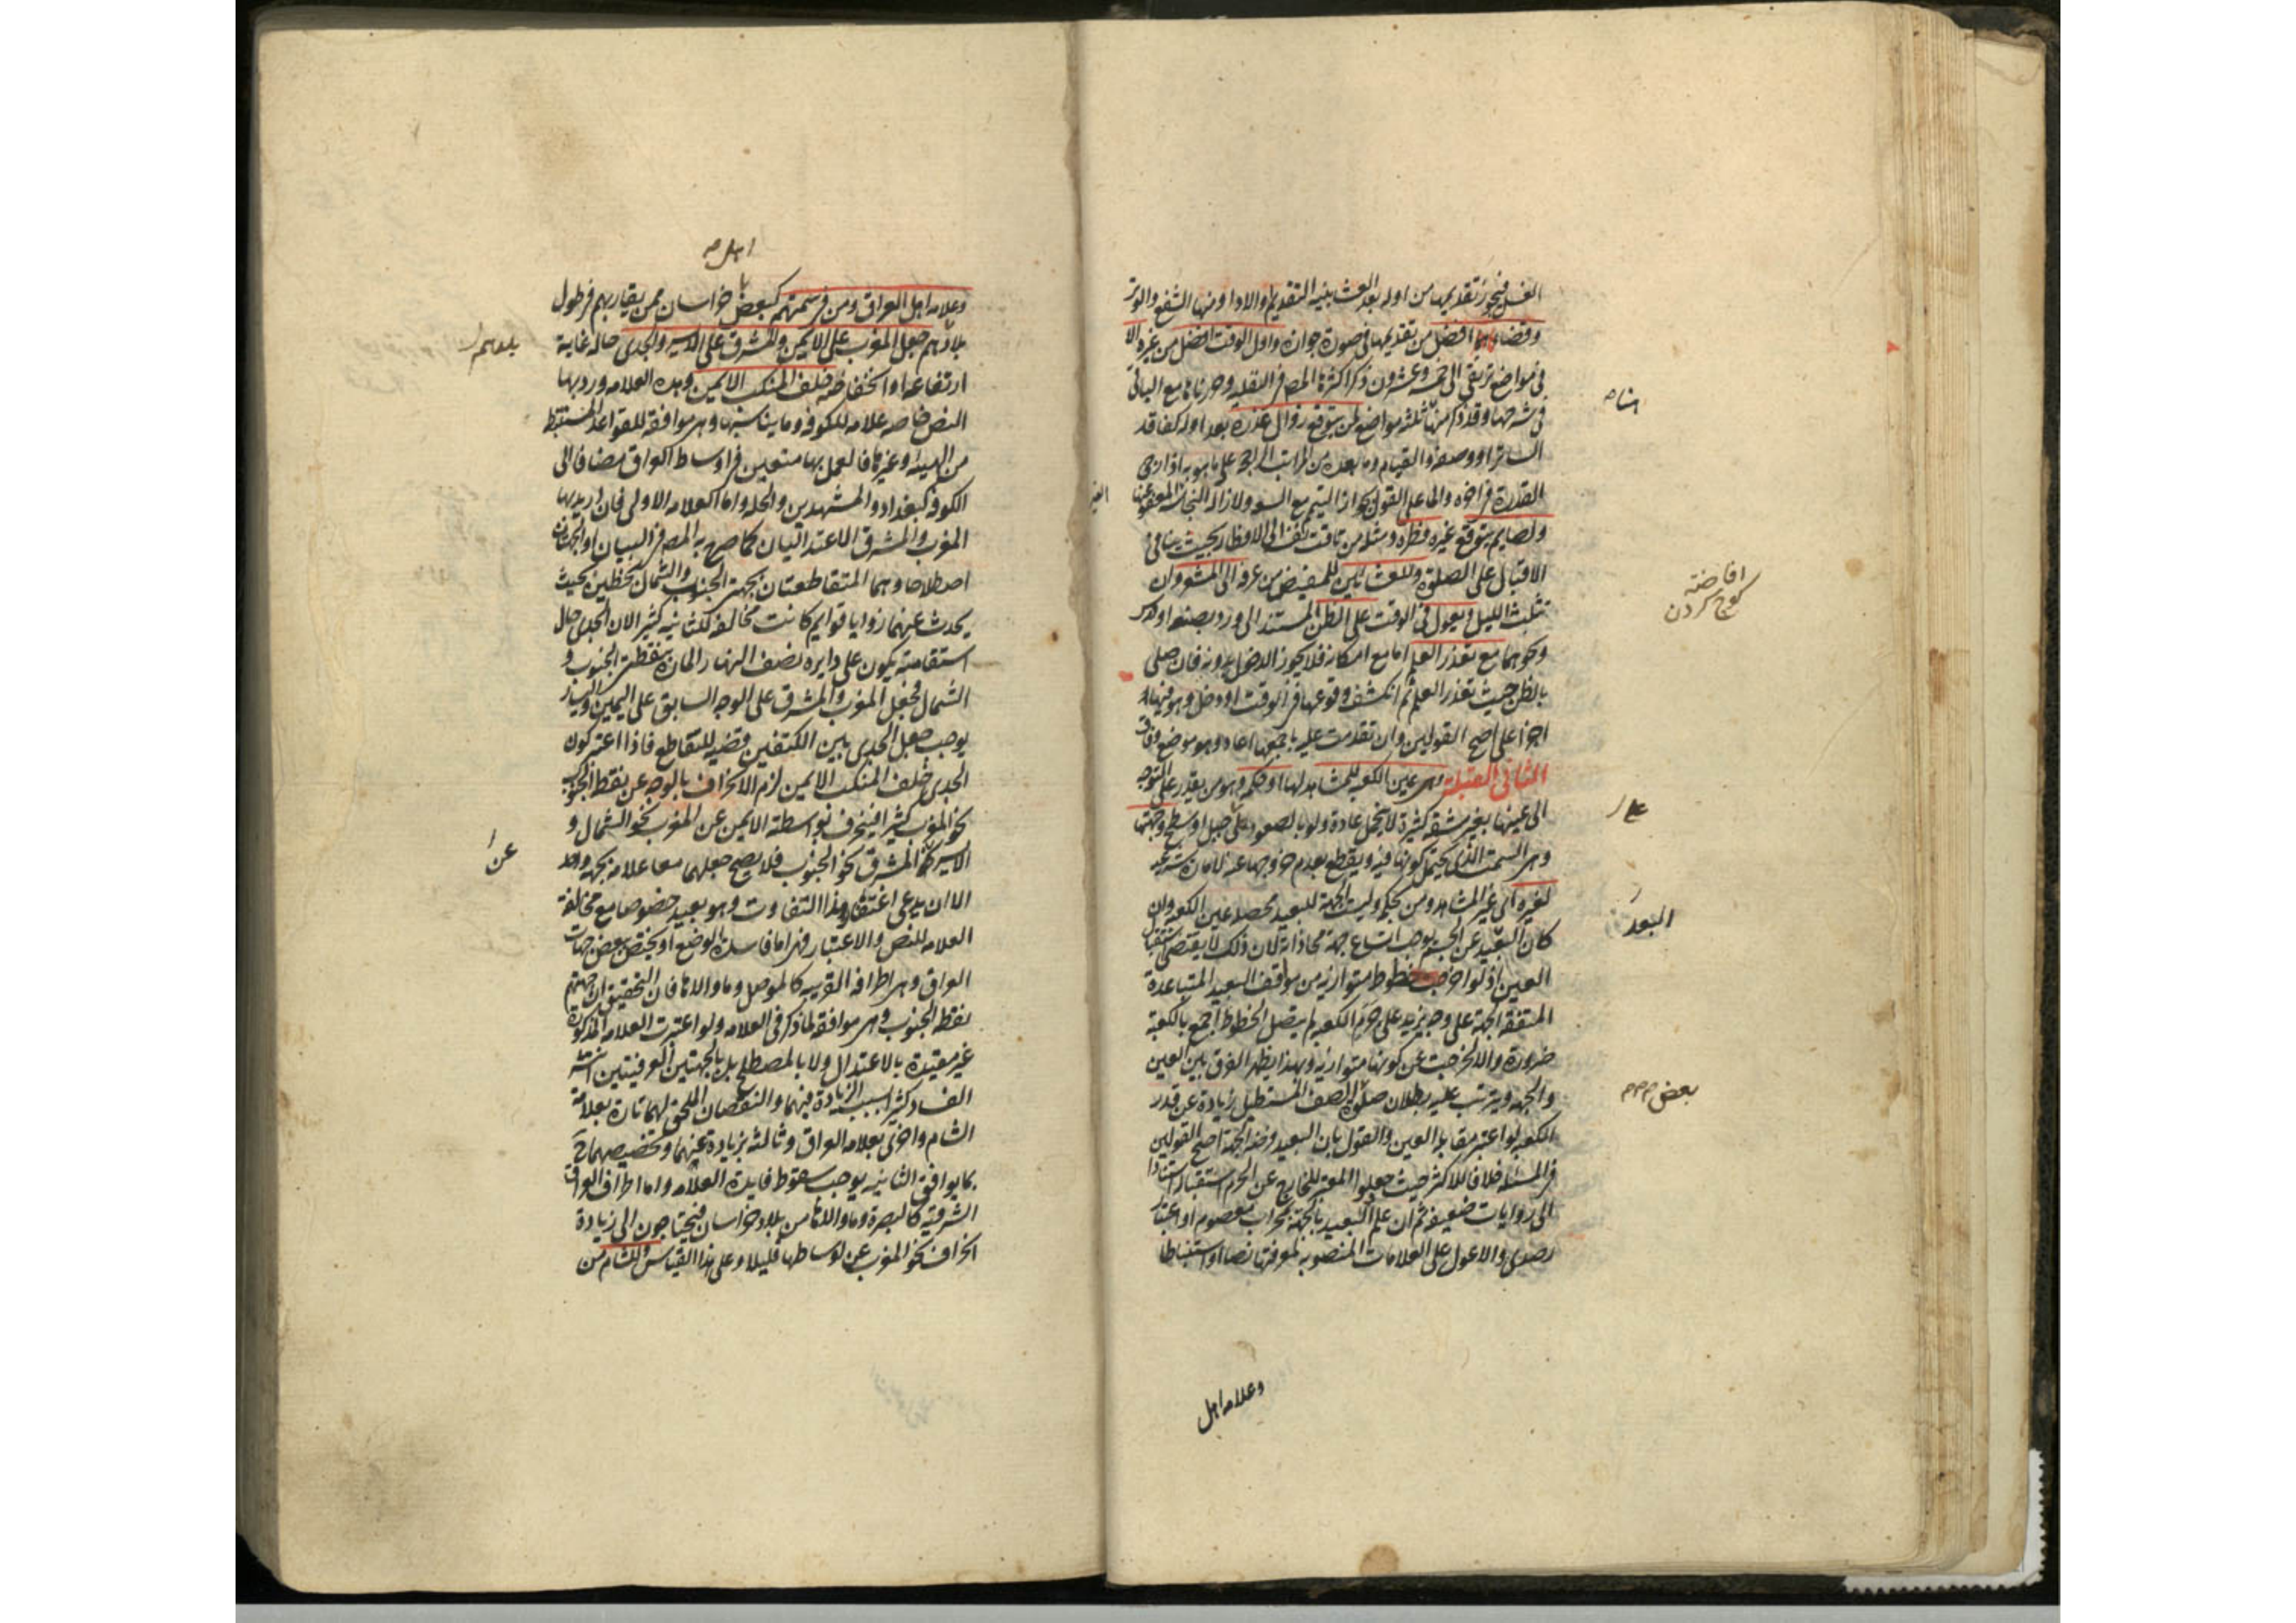 الغسل فيجوز تقديمها من اوله بعد العشا بنيه التقديم او الادا ومنها الشفع والوتر
وقضاوها افضل من تقديمها فى صورة جوازه واول الوقت افضل من غيره الا
فى مواضع ترتقى الى خمسة وعشرون ذكر اكثرها المصه فى النفليه وحررناها مع الباقى
فى شرحها وقد ذكر منها ثلثه مواضع لمن يتوقع زوال عذره بعد اوله كفاقد
الساتر او وصفه والقيام وما بعده من المراتب الراجحة على ما هو به اذا رجى
القدرة فى اخره والما على القول بجواز التيمم مع السعه ولازالة النجاسة المعفو عنها
ولصايم يتوقع غيره فطره ومثله من تاقت نفسه الى الافطار بحيث ينافى
الاقبال على الصلوة وللعشائين للمفيض من عرفه الى المشعر وان
تثلث الليل ويعول فى الوقت على الظن المستند الى ورد بصنعه او درس
ونحوهما مع تعذر العلم اما مع امكانه فلا يجوز الدخول بدونه فان صلى
بالظن حيث تعذر العلم ثم انكشف وقوعها فى الوقت او دخل وهو فيها
اجزا على اصح القولين وان تقدمت عليه باجمعها اعاد وهو موضع وفاق
الثانى القبلة وهى عين الكعبه للمشاهد لها او حكمه وهو من يقدر على التوجه
الى عينها بغير مشقه كثيرة لا تتحمل عادة ولو بالصعود على جبل او سطح وجهتها
وهى السمت الذى يحتمل كونها فيه ويقطع بعدم خروجها عنه لامارة شرعيه
لغيره اى غير المشاهد ومن بحكمه وليست الجهة للبعيد محصله عين الكعبه وان
كان البعيد عن الجسم يوجب اتساع جهة محاذاته لان ذلك لا يقتضى استقبال
العين اذ لو اخرجت خطوط متوازيه من مواقف البعيد المتباعدة
المتفقه الجهة على وجه يزيد على جرم الكعبه لم يتصل الخطوط اجمع بالكعبة
ضرورة والا لخرجت عن كونها متوازيه وبهذا يظهر الفرق بين العين
والجهه ويترتب عليه بطلان صلوة الصف المستطيل زيادة عن قدر
الكعبه لو اعتبر مقابلة العين والقول بان البعيد فرضه الجهة اصح القولين
فى المسئله خلافا للاكثر حيث جعلوا المعتبر للخارج عن الحرم استقباله استنادا
الى روايات ضعيفه ثم ان علم البعيد بالجهة بمحراب معصوم او اعتبار
رصدى والا عول على العلامات المنصوبه لمعرفتها نصا او استنباطا
وعلامه اهل
افاضة
كوچ كردن
على
البعد
بعض
اهل
وعلامه اهل العراق ومن فى سمتهم كبعض خراسان ممن يقاربهم فى طول
بلادهم جعل المغرب على الايمن والمشرق على الايسر والجدى حالة غاية
ارتفاعه او انخفاضه خلف المنكب الايمن وهذه العلامه ورد بها
النص خاصه علامه للكوفه وما يناسبها وهى موافقة للقواعد المستنبطة
من الهيئه وغيرها فالعمل بها متعين فى اوساط العراق مضافا الى
الكوفه كبغداد والمشهدين والحله واما العلامه الاولى فان اريد بها
المغرب والمشرق الاعتداليان كما صرح به المصه فى البيان او الجهتان
اصطلاحا وهما المتقاطعتان بجهتى الجنوب والشمال بخطين بحيث
يحدث عنهما زوايا قوايم كانت مخالفه للثانيه كثيرا لان الجدى حال
استقامته يكون على دايره نصف النهار المارة بنقطتى الجنوب و
الشمال فجعل المغرب والمشرق على الوجه السابق على اليمين واليسار
يوجب جعل الجدى بين الكتفين قضيه للتقاطع فاذا اعتبر كون
الجدى خلف المنكب الايمن لزم الانحراف بالوجه عن نقطة الجنوب
نحو المغرب كثيرا فينحرف بواسطته الايمن عن المغرب نحو الشمال و
الايسر عن المشرق نحو الجنوب فلا يصح جعلهما معا علامة بجهه واحد
الا ان يدعى اغتفار هذا التفاوت وهو بعيد خصوصا مع مخالفة
العلامه للنص والاعتبار فهى اما فاسدة الوضع او يختص ببعض جهات
العراق وهى اطرافه الغربيه كالموصل وما والاها فان التحقيق ان جهتهم
نقطة الجنوب وهى موافقة لما ذكر فى العلامه ولو اعتبرت العلامه المذكورة
غير مقيدة بالاعتدال ولا بالمصطلح بل بالجهتين العرفيتين انتشر
الفساد كثيرا بسبب الزيادة فيهما والنقصان الملحق لهما تارة بعلامة
الشام واخرى بعلامه العراق وثالثه بزيادة عنهما وتخصيصهما ح
بما يوافق الثانيه يوجب سقوط فايدة العلامه واما اطراف العراق
الشرقيه كالبصرة وما والاها من بلاد خراسان فيحتاجون الى زيادة
انحراف نحو المغرب عن اوساطها قليلا وعلى هذا القياس وللشام من
بلدهم
عن